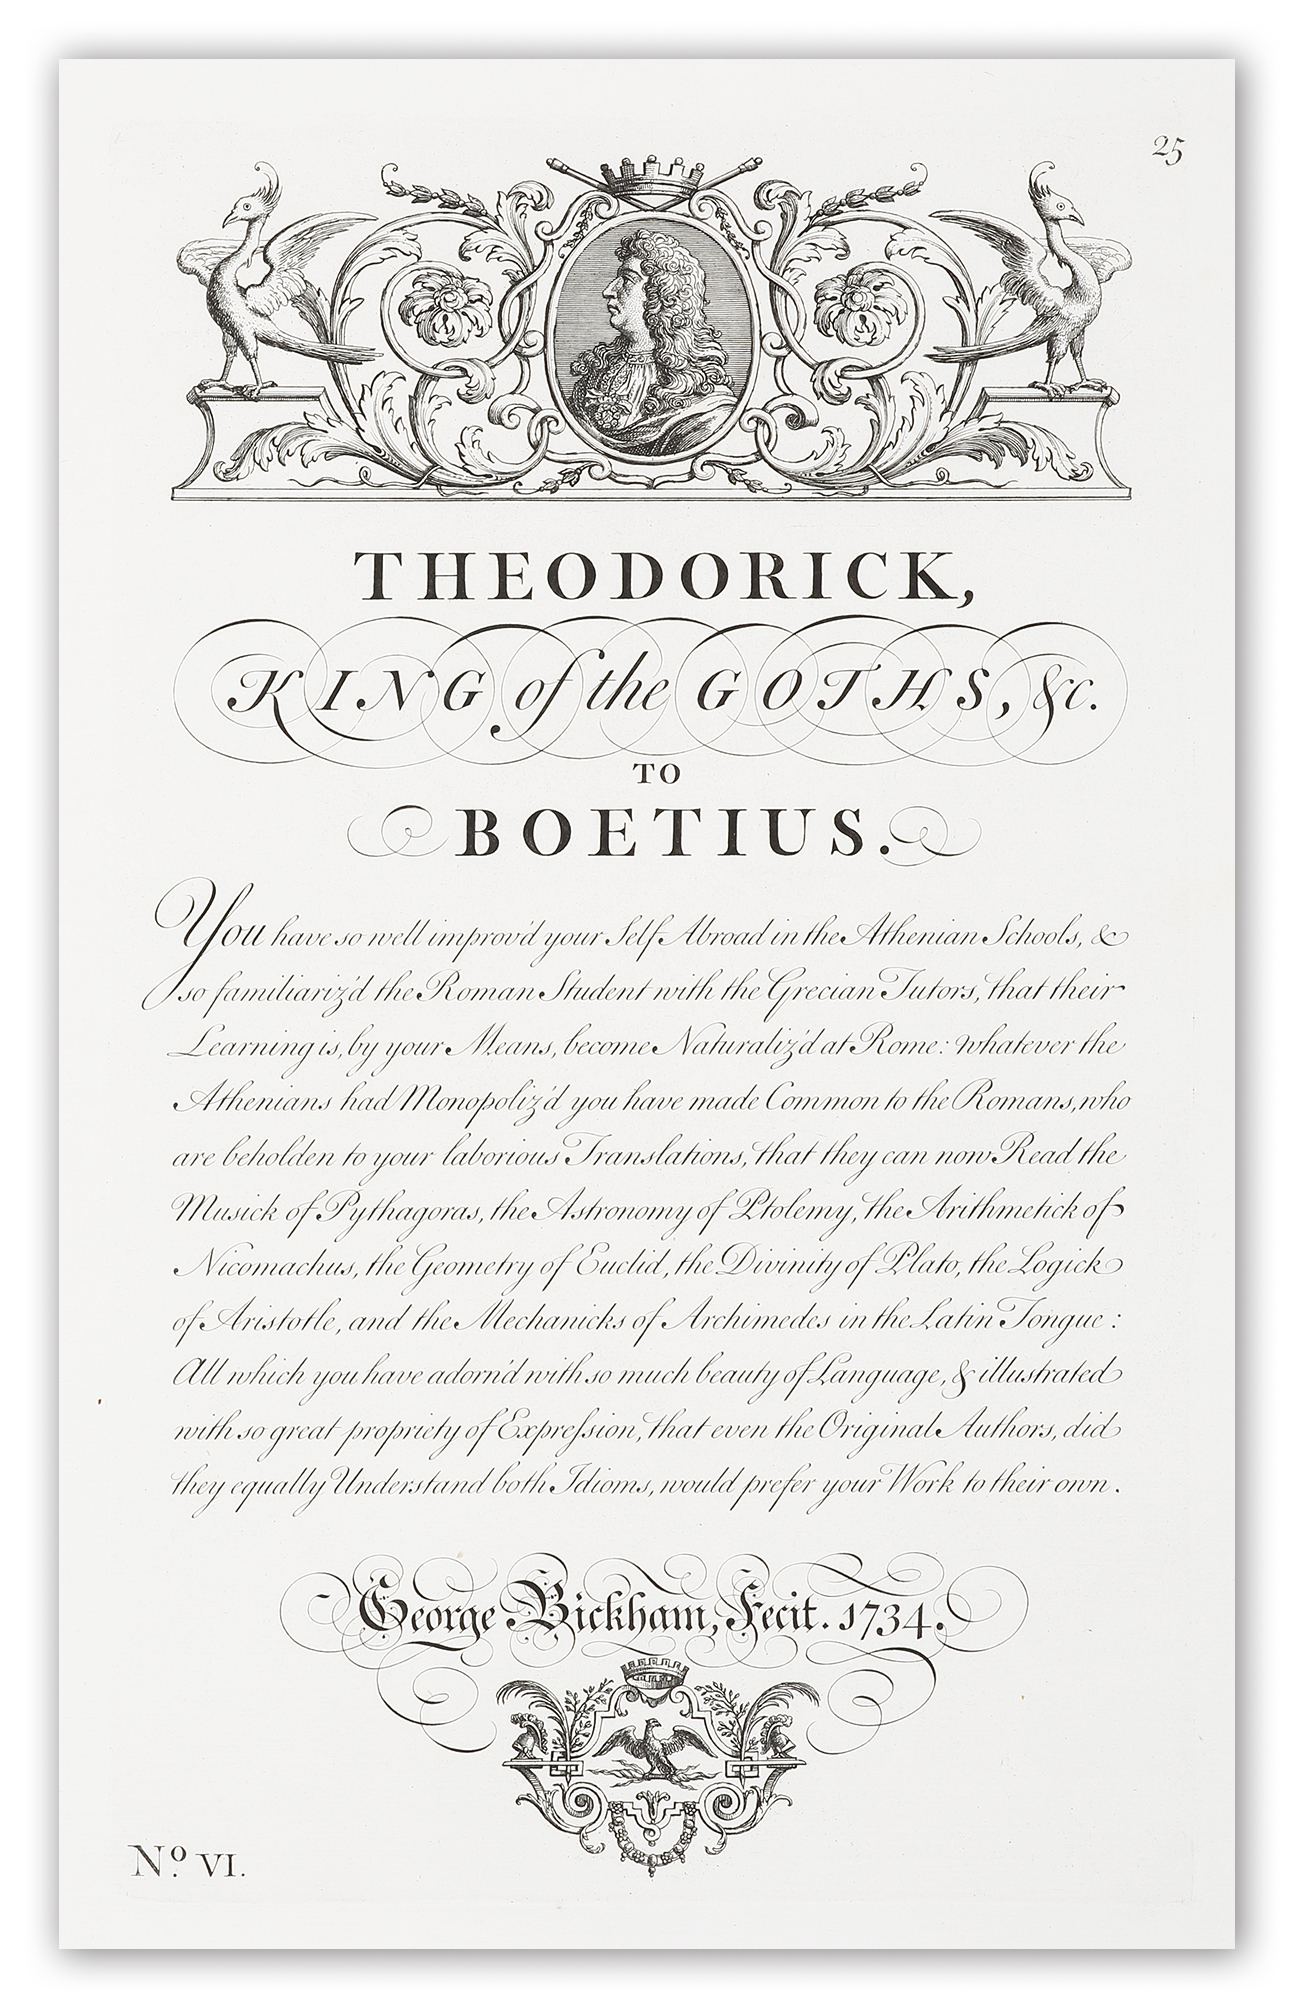 25
THEODORICK,
KING of the GOTHS, &c.
TO
BOETIUS.
You have so well improv'd your Self Abroad in the Athenian Schools, &
so familiariz'd the Roman Student with the Grecian Tutors, that their
Learning is, by your Means, become Naturaliz'd at Rome: whatever the
Athenians had Monopoliz'd you have made Common to the Romans, who
are beholden to your laborious Translations, that they can now Read the
Musick of Pythagoras, the Astronomy of Ptolemy, the Arithmetick of
Nicomachus, the Geometry of Euclid, the Divinity of Plato, the Logick
of Aristotle, and the Mechanicks of Archimedes in the Latin Tongue:
All which you have adorn'd with so much beauty of Language, & illustrated
with so great propriety of Expreſsion, that even the Original Authors, did
they equally Understand both Idioms, would prefer your Work to their own.
George Bickham, Fecit. 1734.
No. VI.